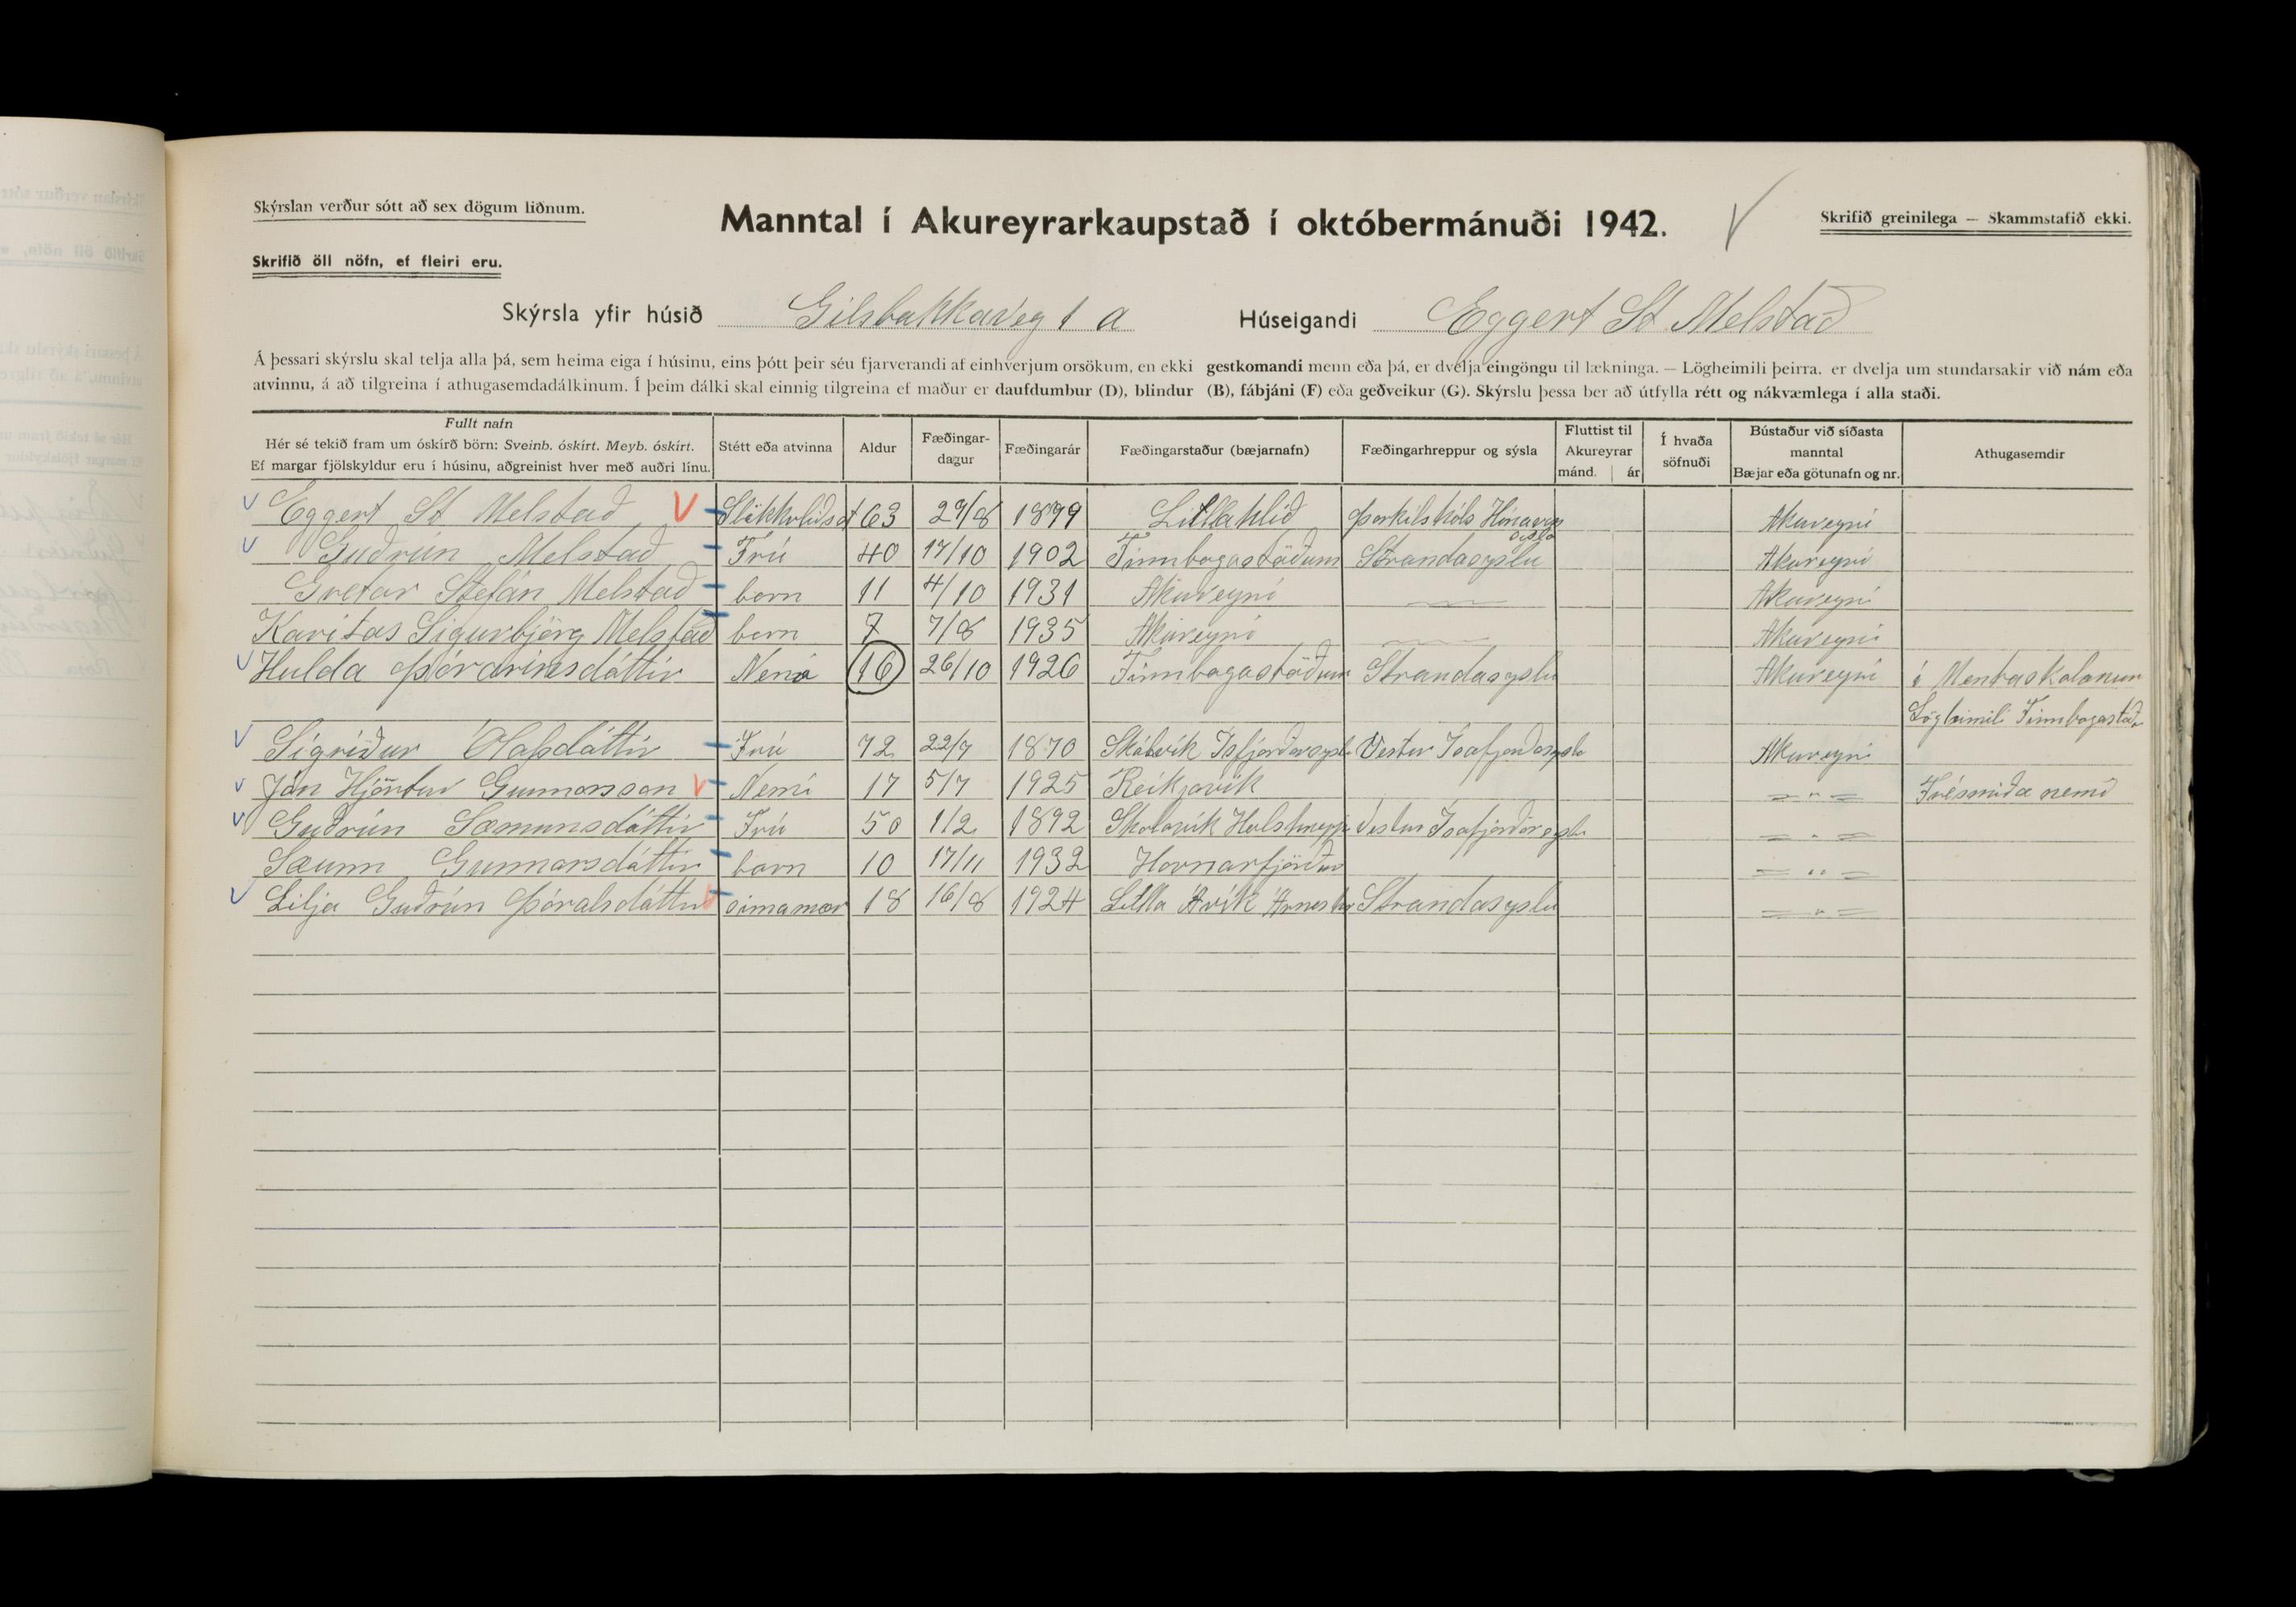 Skýrslan verður sótt að sex dögum liðnum.
Manntal í Akureyrarkaupstað í októbermánuði 1942.
Skrifið greinilega — Skammstafið ekki.
Skrifið öll nöfn, ef fleiri eru.
Skýrsla yfir húsið Gilsbakkaveg 1 a Húseigandi Eggert St Melstað
Á þessari skýrslu skal telja alla þá, sem heima eiga í húsinu, eins þótt þeir séu fjarverandi af einhverjum orsökum, en ekki gestkomandi menn eða þá, er dvelja eingöngu til lækninga. — Lögheimili þeirra, er dvelja um stundarsakir við nám eða
atvinnu, á að tilgreina í athugasemdadálkinum. Í þeim dálki skal einnig tilgreina ef maður er daufdumbur (D), blindur (B), fábjáni (F) eða geðveikur (G). Skýrslu þessa ber að útfylla rétt og nákvæmlega í alla staði.
Fullt nafn
Hér sé tekið fram um óskírð börn: Sveinb. óskírt. Meyb. óskírt.
Ef margar fjölskyldur eru í húsinu, aðgreinist hver með auðri línu.
Stétt eða atvinna
Aldur
Fæðingar-
dagur
Fæðingarár
Fæðingarstaður (bæjarnafn)
Fæðingarhreppur og sýsla
Fluttist til
Akureyrar
mánd. ár
Í hvaða
söfnuði
Bústaður við síðasta
manntal
Bæjar eða götunafn og nr.
Athugasemdir
Eggert St Melstað 63 29/8 1879 Litlahlið Þorkilshóls Akureyri
Guðrún Melstað Frú 40 17/10 1902 Finnbogastöðum Strandasyslu Akureyri
Gretar Stefán Melstað barn 11 4/10 1931 Akureyri Akureyri
Karitas Sigurbjörg Melstað barn 7 7/8 1935 Akureyri Akureyri
Hulda Þórarinsdóttir Nemi 16 26/10 1926 Finnbogastöðum Strandasyslu Akureyri í Mentaskolanum
Lögheimili Finnbogastað
Sigríður Olafsdóttir Frú 72 22/7 1870 Skálavík Isfjarðarsyslu Vestur Isafjarðarsysla Akureyri
Jón Hjörtur Gunnarsson Nemi 17 5/7 1925 Reikjavík — " — Trésmiða nemi
Guðrún Sæmunsdóttir Frú 50 1/2 1892 Skalavík Vestur Isafjarðarsysla — " —
Sæunn Gunnarsdóttir barn 10 17/11 1932 Hornarfjörður — " —
Lilja Guðrún Þóralsdóttir símamær 18 16/8 1924 Litlla Ávík Árneshr Strandasyslu — " —